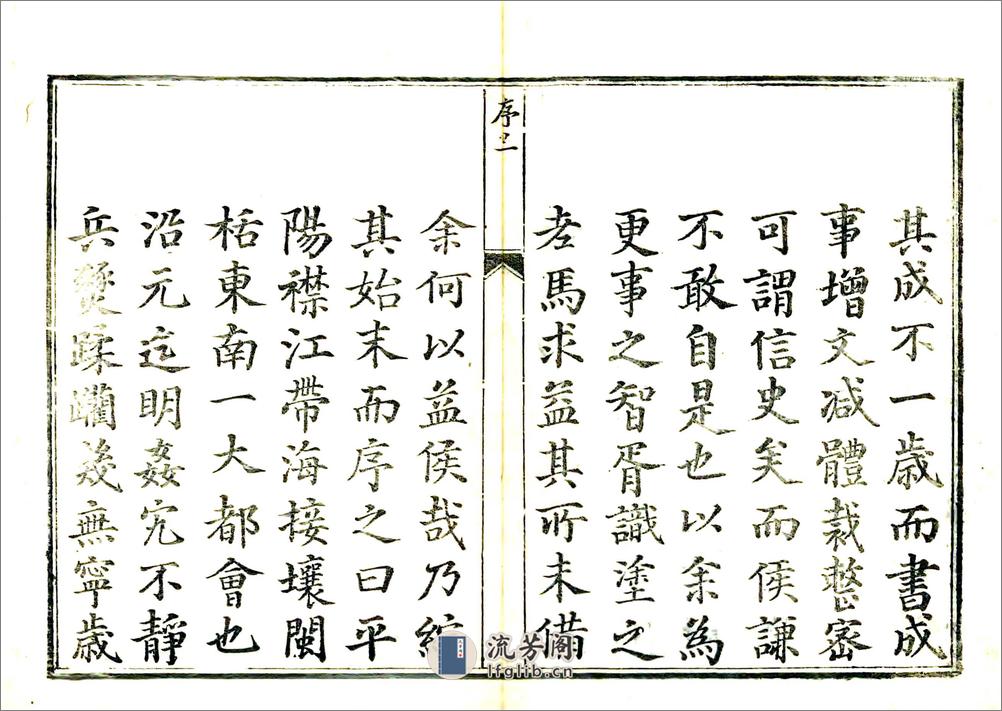 其成不一歲而書成
事增文减體裁整密
可謂信史矣而侯謙
不敢自是也以余為
更事之智胥識塗之
老馬求益其所未備
序二
余何以益侯哉乃綜
其始末而序之曰平
陽襟江帶海接壤閩
栝東南一大都會也
沿元迄明姦宄不靜
兵燹蹂躪幾無寧歲
流芳阁
lfglib.cn